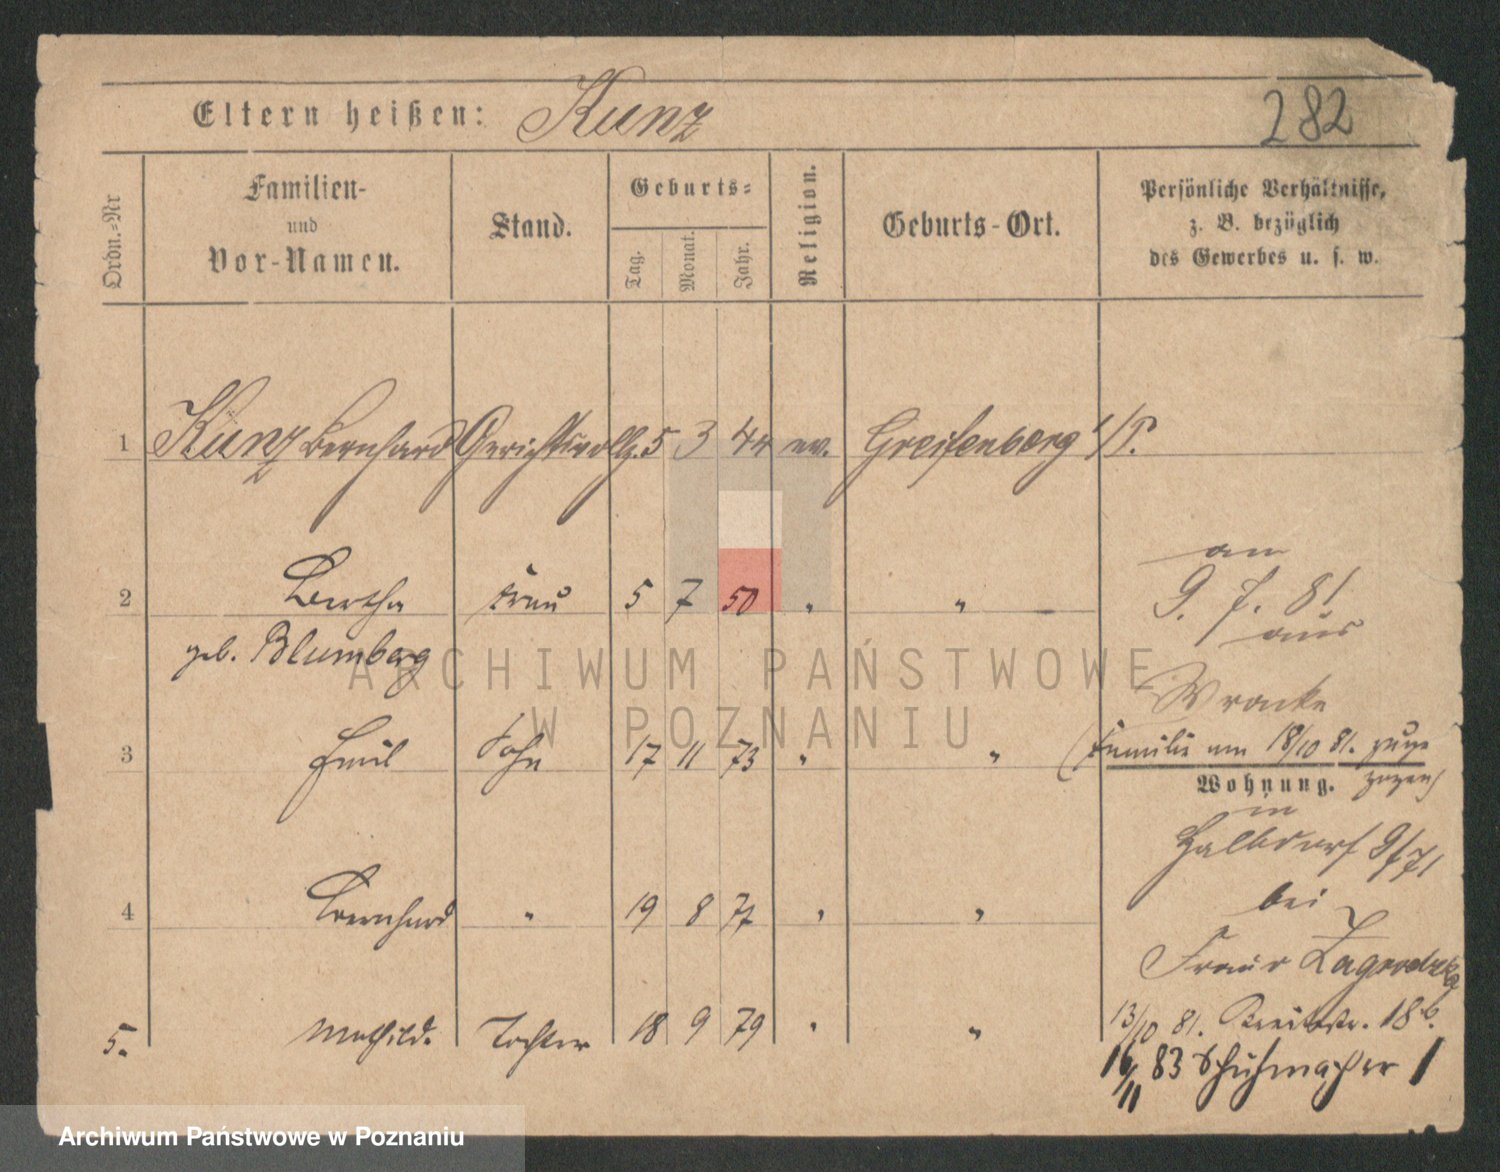 Eltern heißen: Kunz
282
Ordn.=Nr
Familien-
und
Vor-Namen.
Stand.
Geburts=
Tag.
Monat.
Jahr.
Religion.
Geburts-Ort.
Persönliche Verhältnisse,
z. B. bezüglich
des Gewerbes u. s. w.
1 Kunz Bernhard Gerichtsvollz. 5 3 44 ev. Greifenberg i/P.
2 Bertha Frau 5 7 50 " "
geb. Blumberg
an
9. 7. 81
aus
Wronke
3 Emil Sohn 17 11 73 " "
(Familie am 18/10 81. zuge
zogen)
Wohnung.
in
Halbdorf 9/71
bei
4 Bernhard " 19 8 77 " "
Frau v
5. Mathilde Tochter 18 9 79 " "
13/10 81. Breitestr. 18b.
16/11 83 Schuhmacher 1
ARCHIWUM PAŃSTWOWE
W POZNANIU
Archiwum Państwowe w Poznaniu